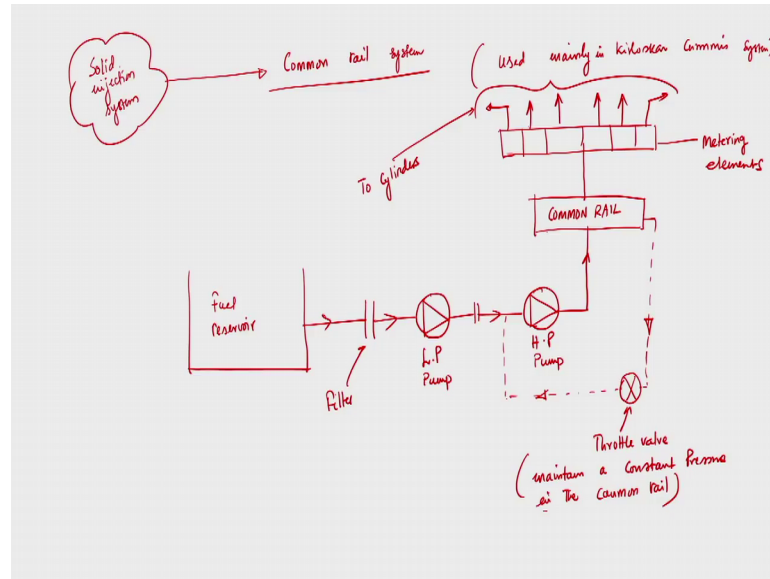 Solid
injection
system
Common rail system
(Used mainly in Kirloskar Cummins System
To cylinders
Metering
elements
COMMON RAIL
Fuel
reservoir
Filter
L.P
Pump
H.P
Pump
Throttle valve
(maintain a Constant Pressure
in The Common rail)